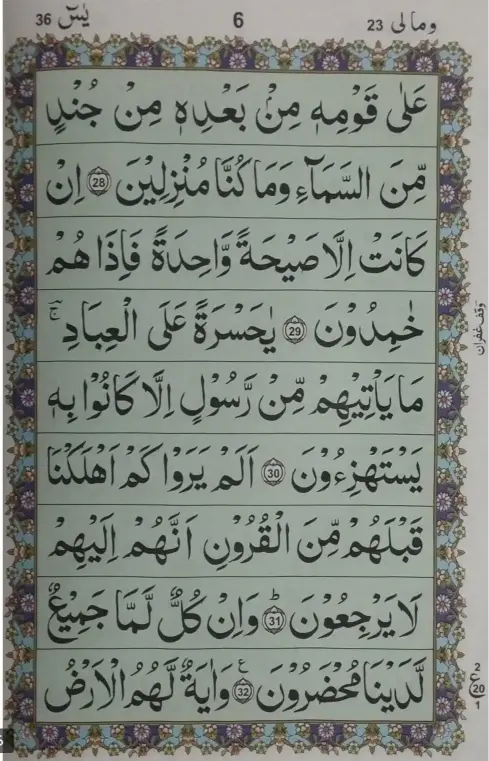 یٰسٓ 36
6
ومالی 23
عَلٰى قَوْمِهٖ مِنْۢ بَعْدِهٖ مِنْ جُنْدٍ
مِّنَ السَّمَآءِ وَمَا كُنَّا مُنْزِلِيْنَ ۝28 اِنْ
كَانَتْ اِلَّا صَيْحَةً وَّاحِدَةً فَاِذَا هُمْ
خٰمِدُوْنَ ۝29 يٰحَسْرَةً عَلَى الْعِبَادِ ۚ
وقف غفران
مَا يَاْتِيْهِمْ مِّنْ رَّسُوْلٍ اِلَّا كَانُوْا بِهٖ
يَسْتَهْزِءُوْنَ ۝30 اَلَمْ يَرَوْا كَمْ اَهْلَكْنَا
قَبْلَهُمْ مِّنَ الْقُرُوْنِ اَنَّهُمْ اِلَيْهِمْ
لَا يَرْجِعُوْنَ ۝31ؕ وَاِنْ كُلٌّ لَّمَّا جَمِيْعٌ
لَّدَيْنَا مُحْضَرُوْنَ ۝32ع وَاٰيَةٌ لَّهُمُ الْاَرْضُ
2
ع
20
1